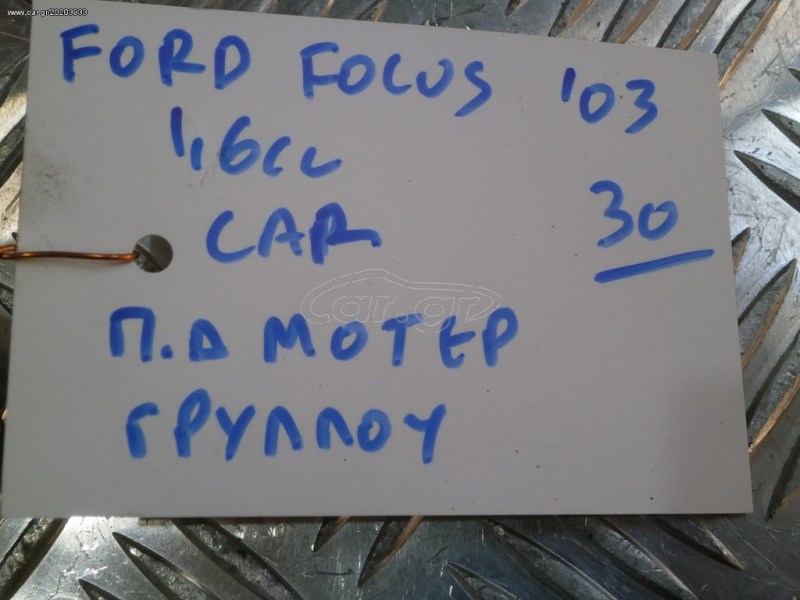 www.car.gr/20203693
FORD FOCUS '03
1,6cc
30
CAR
car.gr
Π.Δ ΜΟΤΕΡ
ΓΡΥΛΛΟΥ